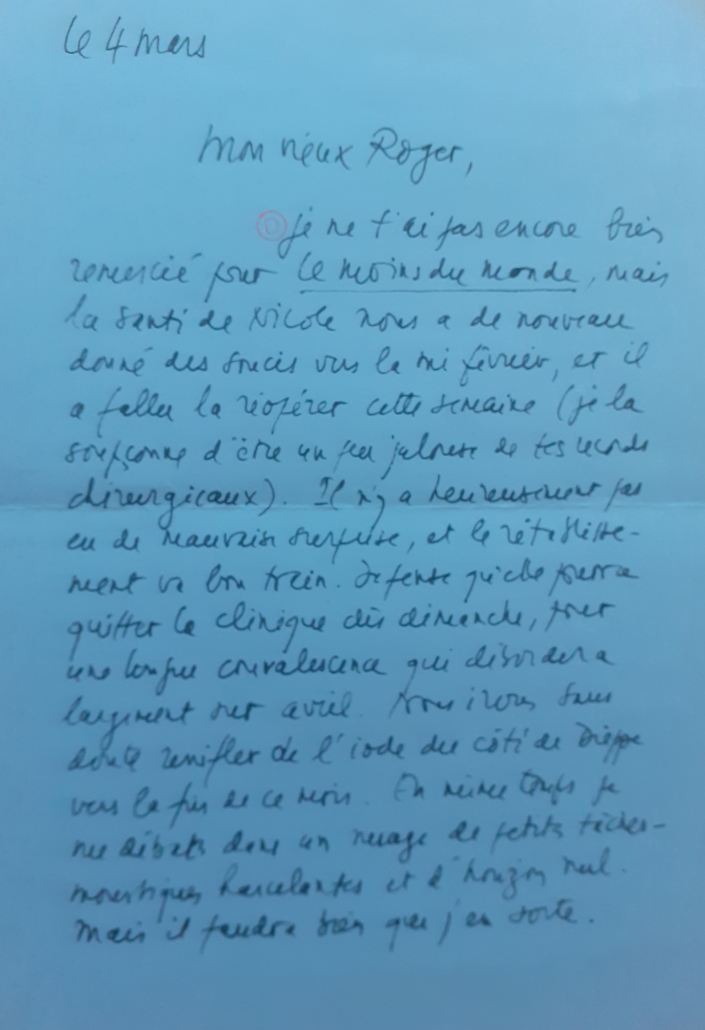 le 4 mars
Mon vieux Roger,
je ne t'ai pas encore bien
remercié pour Le moins du monde, mais
la santé de Nicole nous a de nouveau
donné des soucis vers la mi février, et il
a fallu la réopérer cette semaine (je la
soupçonne d'être un peu jalouse de tes records
chirurgicaux). Il n'y a heureusement pas
eu de mauvaise surprise, et le rétablisse-
ment va bon train. Je pense qu'elle pourra
quitter la clinique dès dimanche, pour
une longue convalescence qui débordera
largement sur avril. Nous irons sans
doute renifler de l'iode du côté de Dieppe
vers la fin de ce mois. En même temps je
me débats dans un nuage de petites tâches-
moustiques harcelantes et d'horizon nul.
Mais il faudra bien que j'en sorte.